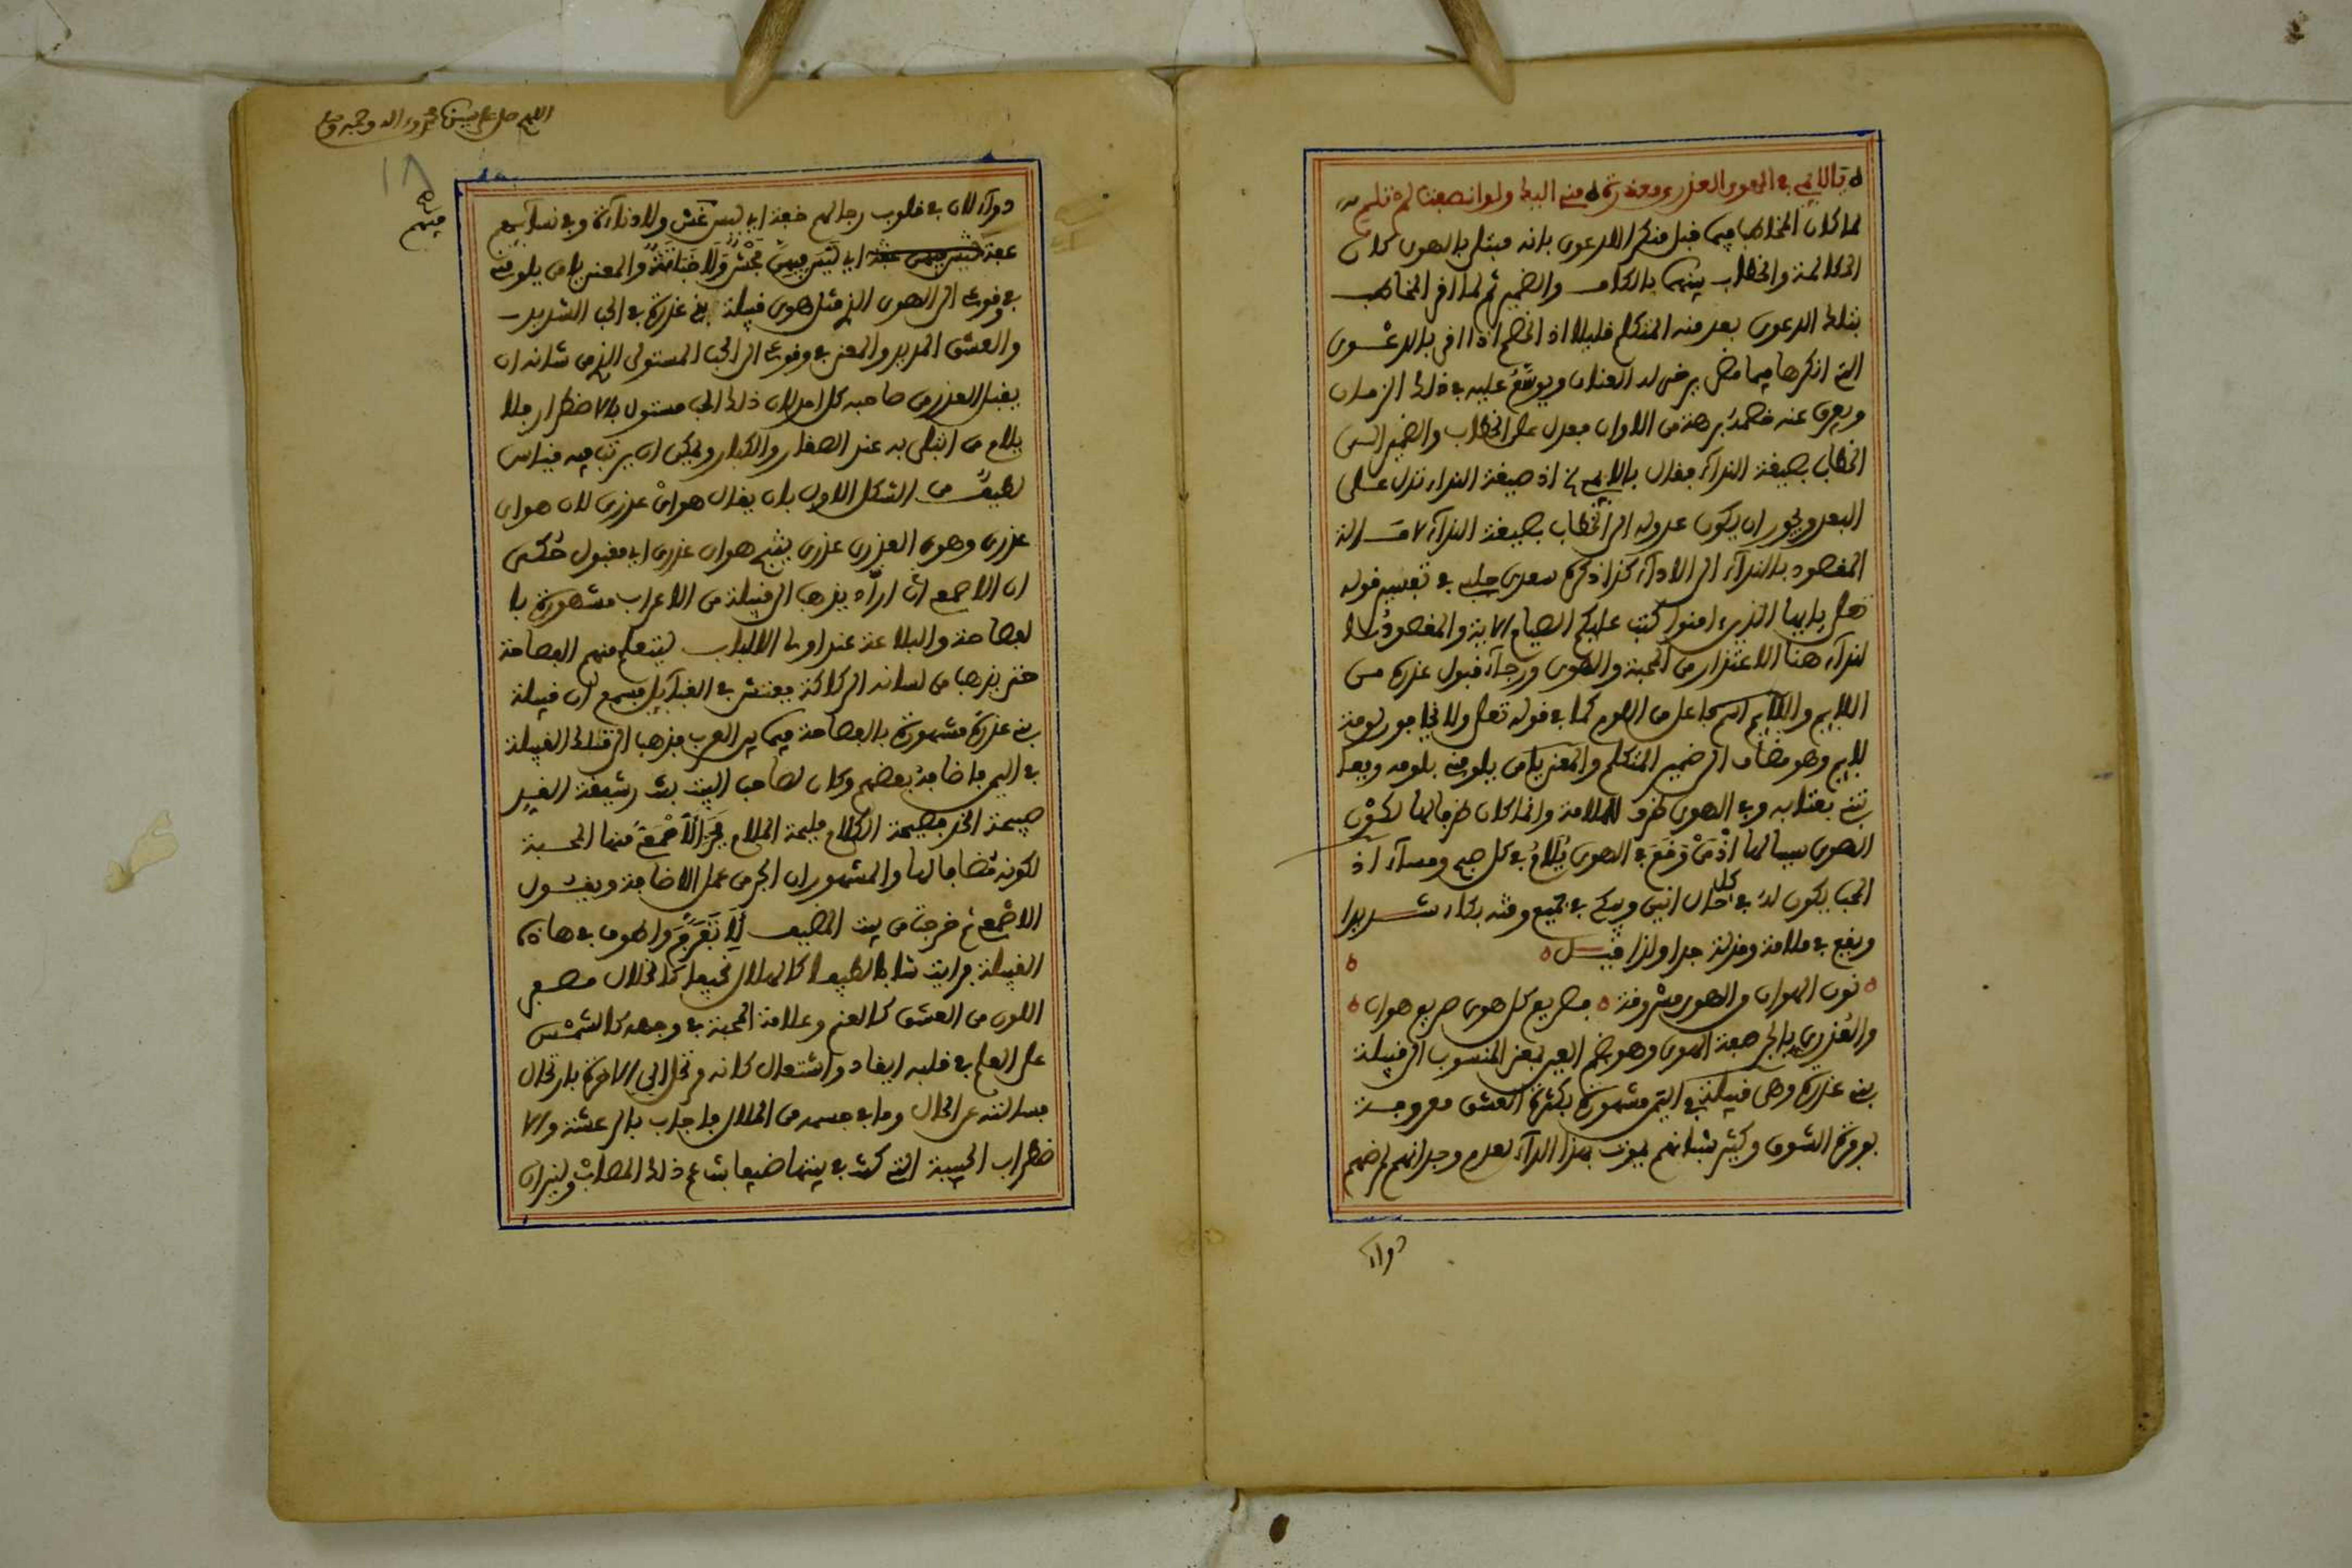 يا لايمي في الهوى العذري معذرة مني اليك ولو انصفت لم تلم
لما كان المخاطب فيما قبل منكرا للدعوى بانه مبتلى بالهوى كان
المكالمة والخطاب بينهما بالكاف والضمير ثم لما اقر المخاطب
بتلك الدعوى بعد منه المتكلم قليلا اذ الخصم اذا اقر بالدعوى
التي انكرها فيما مضى يرخى له العنان ويوسّع عليه في ذلك الزمان
ويعرض عنه خصمه برهة من الاوان فعدل عن الخطاب والضمير الى
الخطاب بصيغة النداء فقال يا لايمي اذ صيغة النداء تدل على
البعد ويجوز ان يكون عدوله الى الخطاب بصيغة النداء لامالة
المقصود بالنداء الى الاداء كذا ذكره سعدي جلبي في تفسير قوله
تعلى يا ايها الذين ءامنوا كتب عليكم الصيام الاية والمقصود با
لنداء هنا الاعتذار من المحبة والهوى ورجاء قبول عذره من
اللايم واللايم اسم فاعل من اللوم كما في قوله تعلى ولا يخافون لومة
لايم وهو مضاف الى ضمير المتكلم والمعنى يا من يلومني بلومه ويعا
تبني بعتابه وفي الهوى ظرف للملامة وانما كان ظرفا لها لكون
الهوى سببا لها اذ من وقع في الهوى يلام في كل صبح ومساء اذ
المحب يكون له في كل حال انين ويبكي في جميع وقته بكاء شديدا
ويقع في ملامة ومذلة جدا ولذا قيل
نون الهوان من الهوى مسروقة فصريع كل هوى صريع هوان
والعذري بالجر صفة الهوى وهو بضم العين بمعنى المنسوب الى قبيلة
بني عذرة وهي قبيلة في اليمن مشهورة بكثرة العشق معروفة
بوفرة الشوق وكثير شبانهم يموت بهذا الداء لعدم وجدانهم لمرضهم
دواء
اللهم صل على سيدنا محمد وءاله وصحبه وسلم
١٨
فيهم
دواء لان في قلوب رجالهم خفة اي ليس غش ولا دناءة وفي نساءهم
عفة ليس فيهن عفة اي ليس فيهن فحش ولا خباثة والمعنى يا من يلومني
في وقوعي الى الهوى الذي مثل هوى قبيلة بني عذرة في الحب الشديد
والعشق المديد والمعنى في وقوعي الى الحب المستولي الذي من شانه ان
يقبل العذر من صاحبه كل امر لان ذلك الحب مستول بالاضطرار فلا
يلام من ابتلي به عند الصغار والكبار ويمكن ان يرتب فيه قياس
لطيف من الشكل الاول بان يقال هواي عذري لان هواي
عذري وهوى العذري عذري ينتج هواي عذري اي مقبول حكي
ان الاصمعي اراد يذهب الى قبيلة من الاعراب مشهورة با
لفصاحة والبلاغة عند اولى الالباب ليتعلم منهم الفصاحة
حتى يذهب من لسانه الركاكة ففتش في القبايل فسمع ان قبيلة
بني عذرة مشهورة بالفصاحة فيما بين العرب فذهب الى تلك القبيلة
في اليمن فاضافه بعضهم وكان لصاحب البيت بنت رشيقة القد
صبيحة الخد فصيحة الكلام مليحة الملام فجر الاصمعي منها المحبة
لكونه مضافا لها والمشهور ان الجر من عمل الاضافة ويقول
الاصمعي خرجت من بيت المضيف لاتفرج واطوف في هاذه
القبيلة فرايت شابا لطيفا كالهلال نحيفا كالخلال مصفر
اللون من العشق كالغنم وعلامة المحبة في وجهه كالشمس
على العلم في قلبه ايقاد واشتعال كانه قرب الى الاخرة بارتحال
فسالته عن الحال وما في جسمه من الملال فاجاب بالرعشة والا
ضطراب الحبيبة التي كنت في بيتها ضيفا بنت عم ذلك المصاب ونيران